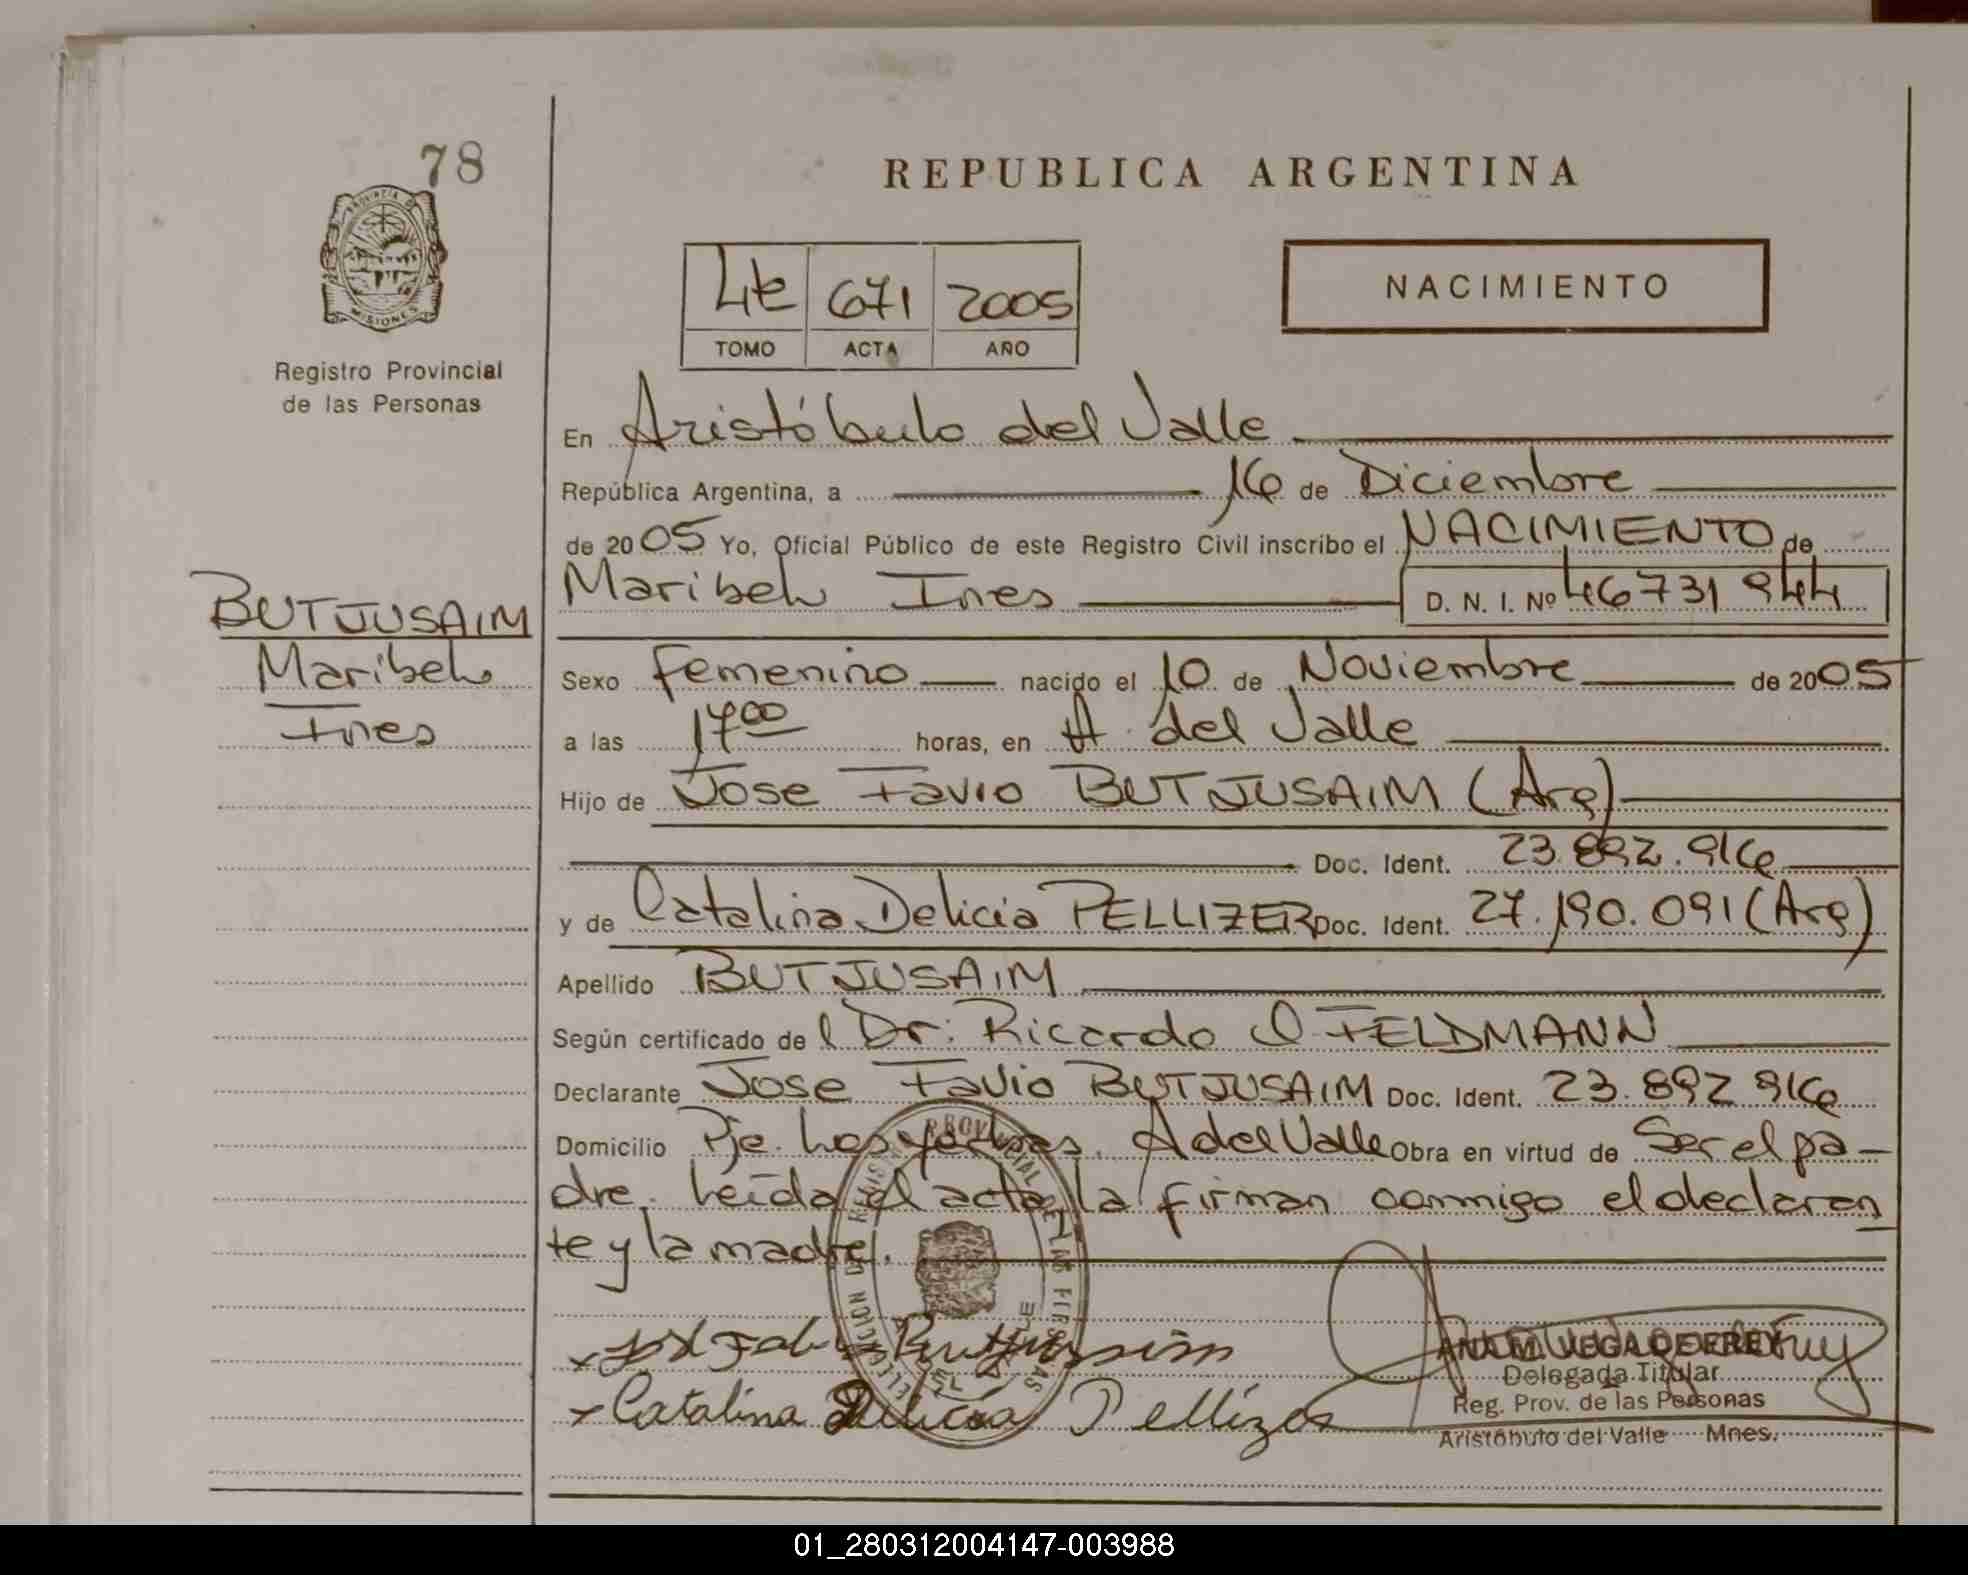 78
REPUBLICA ARGENTINA
PROVINCIA D MISIONES
Registro Provincial
de las Personas
671 2005
TOMO ACTA AÑO
NACIMIENTO
En Aristóbulo del Valle
República Argentina, a 16 de Diciembre
de 2005 Yo, Oficial Público de este Registro Civil inscribo el NACIMIENTO de
Maribel Ines D. N. I. Nº 46731944
BUTJUSAIM
Maribel
Ines
Sexo femenino nacido el 10 de Noviembre de 2005
a las 17 00 horas, en A. del Valle
Hijo de Jose Favio BUTJUSAIM (Arg)
Doc. Ident. 23.892.916
y de Catalina Delicia PELLIZER Doc. Ident. 27.190.091 (Arg)
Apellido BUTJUSAIM
Según certificado de l Dr: Ricardo O FELDMANN
Declarante Jose Favio BUTJUSAIM Doc. Ident. 23.892 916
Domicilio Pje. Los A del Valle Obra en virtud de Ser el pa-
dre. Leída el acta, la firman conmigo el declaran
te y la madre.
Catalina Delicia Pellizer
ANA M. VEGA DE FREY
Delegada Titular
Reg. Prov. de las Personas
Aristóbulo del Valle Mnes.
01_280312004147-003988